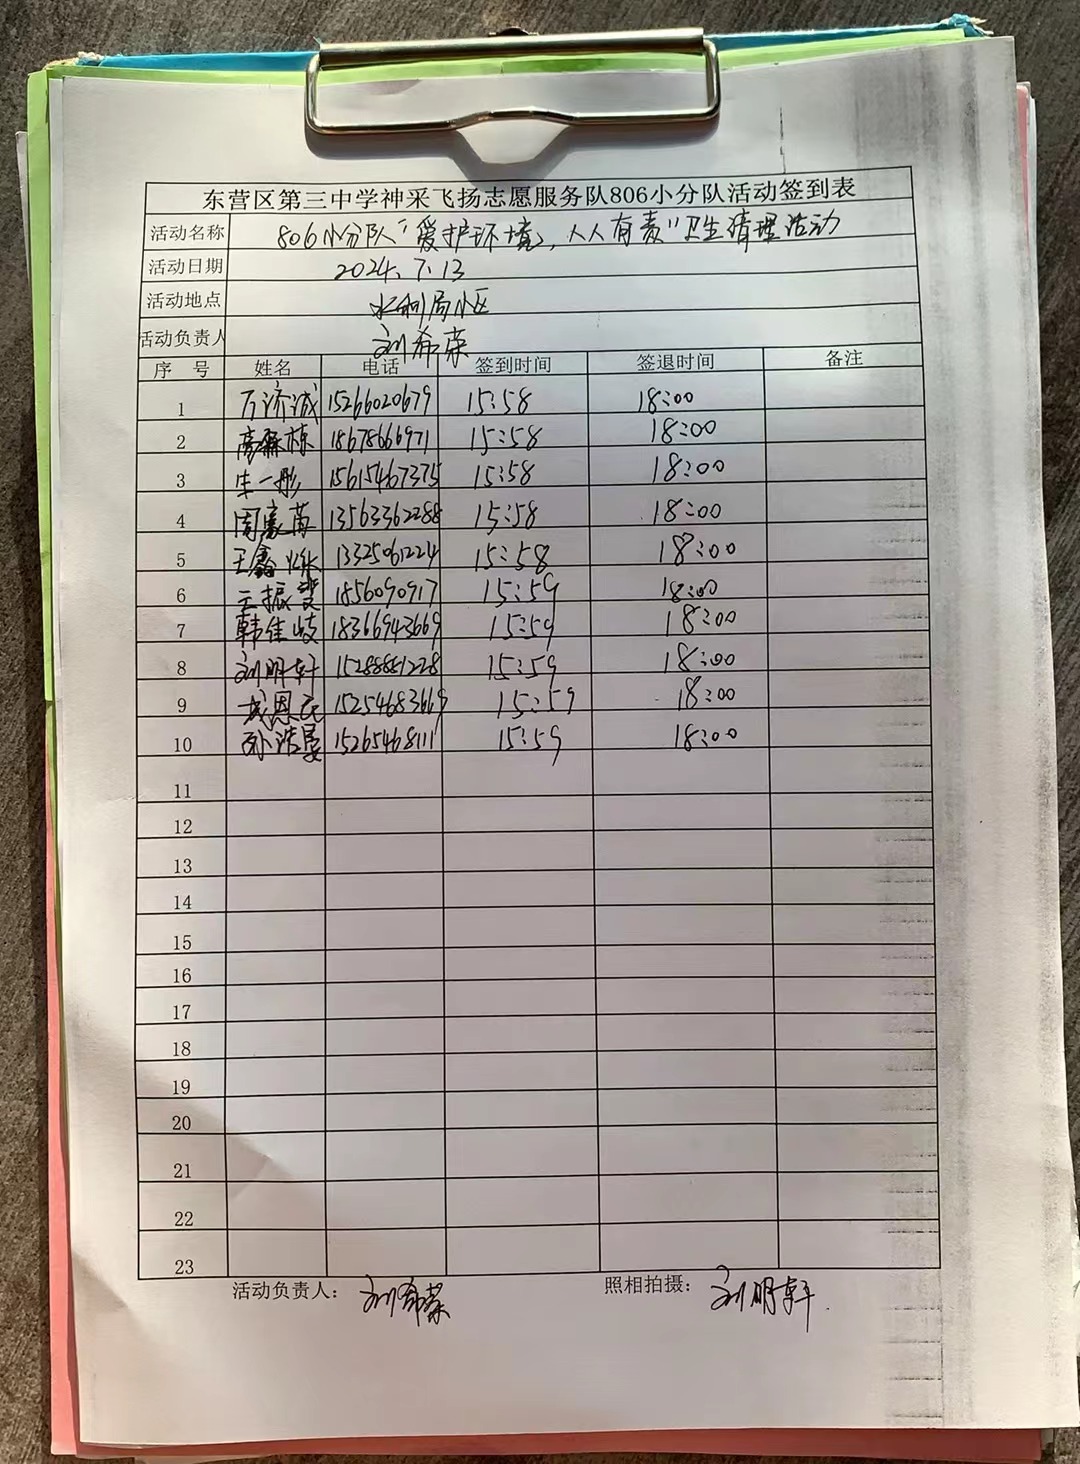 东营区第三中学神采飞扬志愿服务队806小分队活动签到表
活动名称 806小分队“爱护环境，人人有责”卫生清理活动
活动日期 2024.7.13
活动地点 水利局小区
活动负责人 刘希荣
序 号 姓名 电话 签到时间 签退时间 备注
1 万济诚 15266020679 15:58 18:00
2 18678666971 15:58 18:00
3 生一彤 15615467375 15:58 18:00
4 周豪苒 13563362288 15:58 18:00
5 王鑫烁 13325061224 15:58 18:00
6 王振斐 1856090917 15:59 18:00
7 韩佳岐 18366943669 15:59 18:00
8 刘明轩 15288881228 15:59 18:00
9 15254683669 15:59 18:00
10 孙浩晏 15265468111 15:59 18:00
11
12
13
14
15
16
17
18
19
20
21
22
23
活动负责人： 刘希荣 照相拍摄： 刘明轩